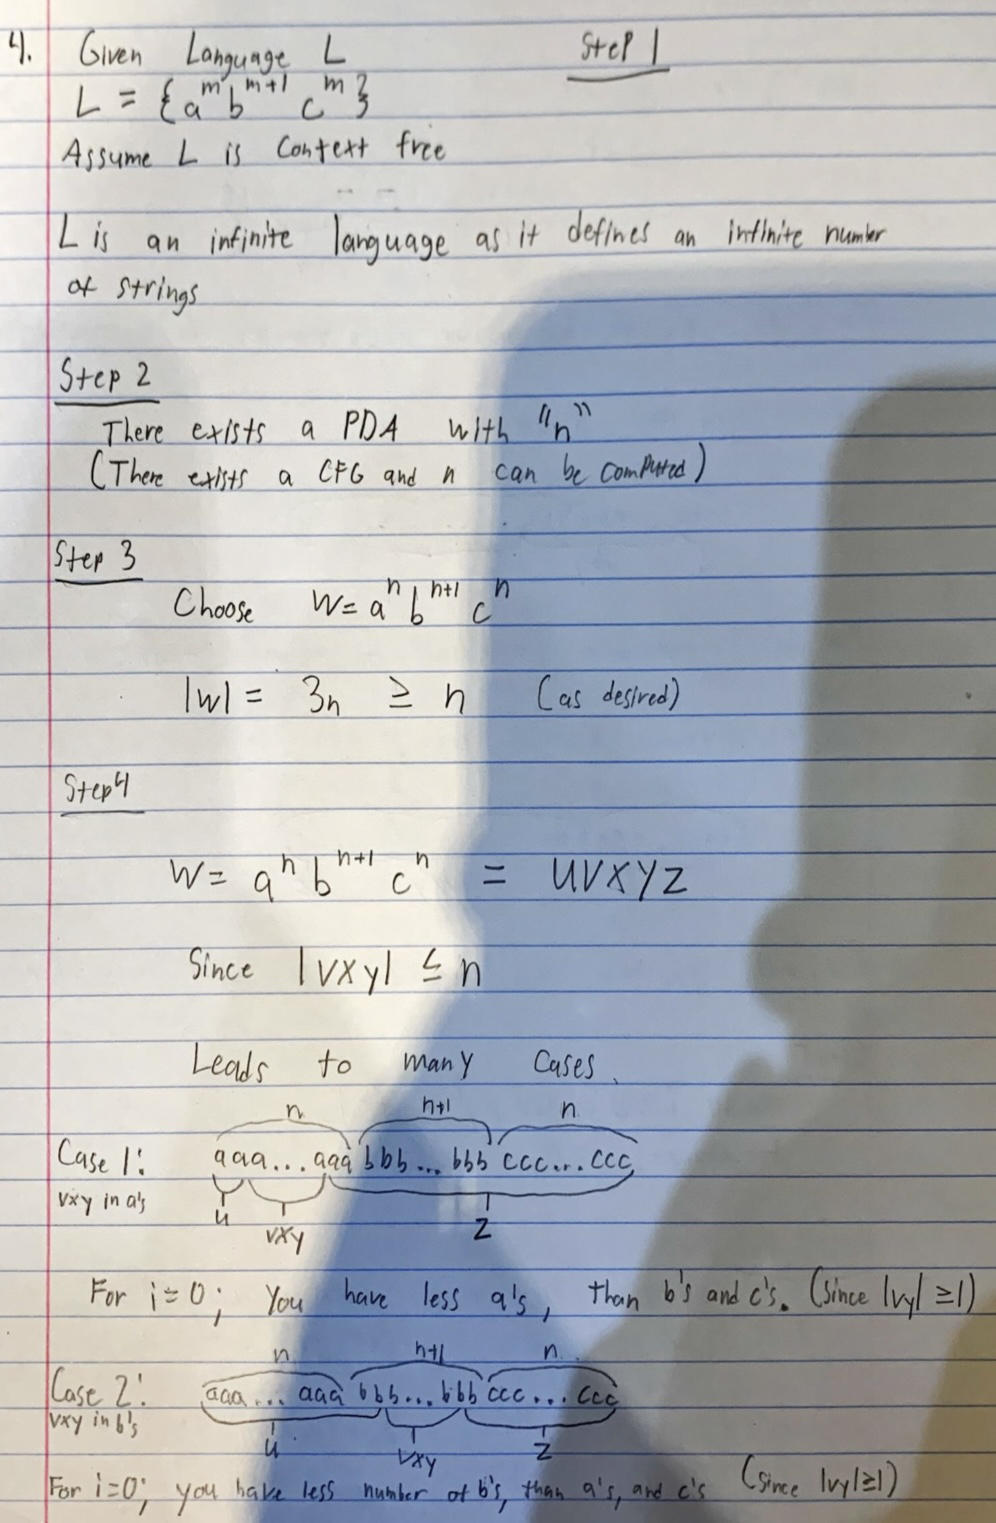 4. Given Language L Step 1
L = {a^m b^{m+1} c^m}
Assume L is Context free
L is an infinite language as it defines an infinite number
of strings
Step 2
There exists a PDA with "n"
(There exists a CFG and n can be computed)
Step 3
Choose W= a^n b^{n+1} c^n
|w| = 3n ≥ n (as desired)
Step 4
W= a^n b^{n+1} c^n = uvxyz
Since |vxy| ≤ n
Leads to many cases.
n n+1 n
Case 1: aaa...aaa bbb...bbb ccc...ccc
vxy in a's u vxy z
For i=0; You have less a's, than b's and c's. (Since |vy| ≥1)
n n+1 n
Case 2: aaa...aaa bbb...bbb ccc...ccc
vxy in b's u vxy z
For i=0; you have less number of b's, than a's, and c's (since |vy|≥1)